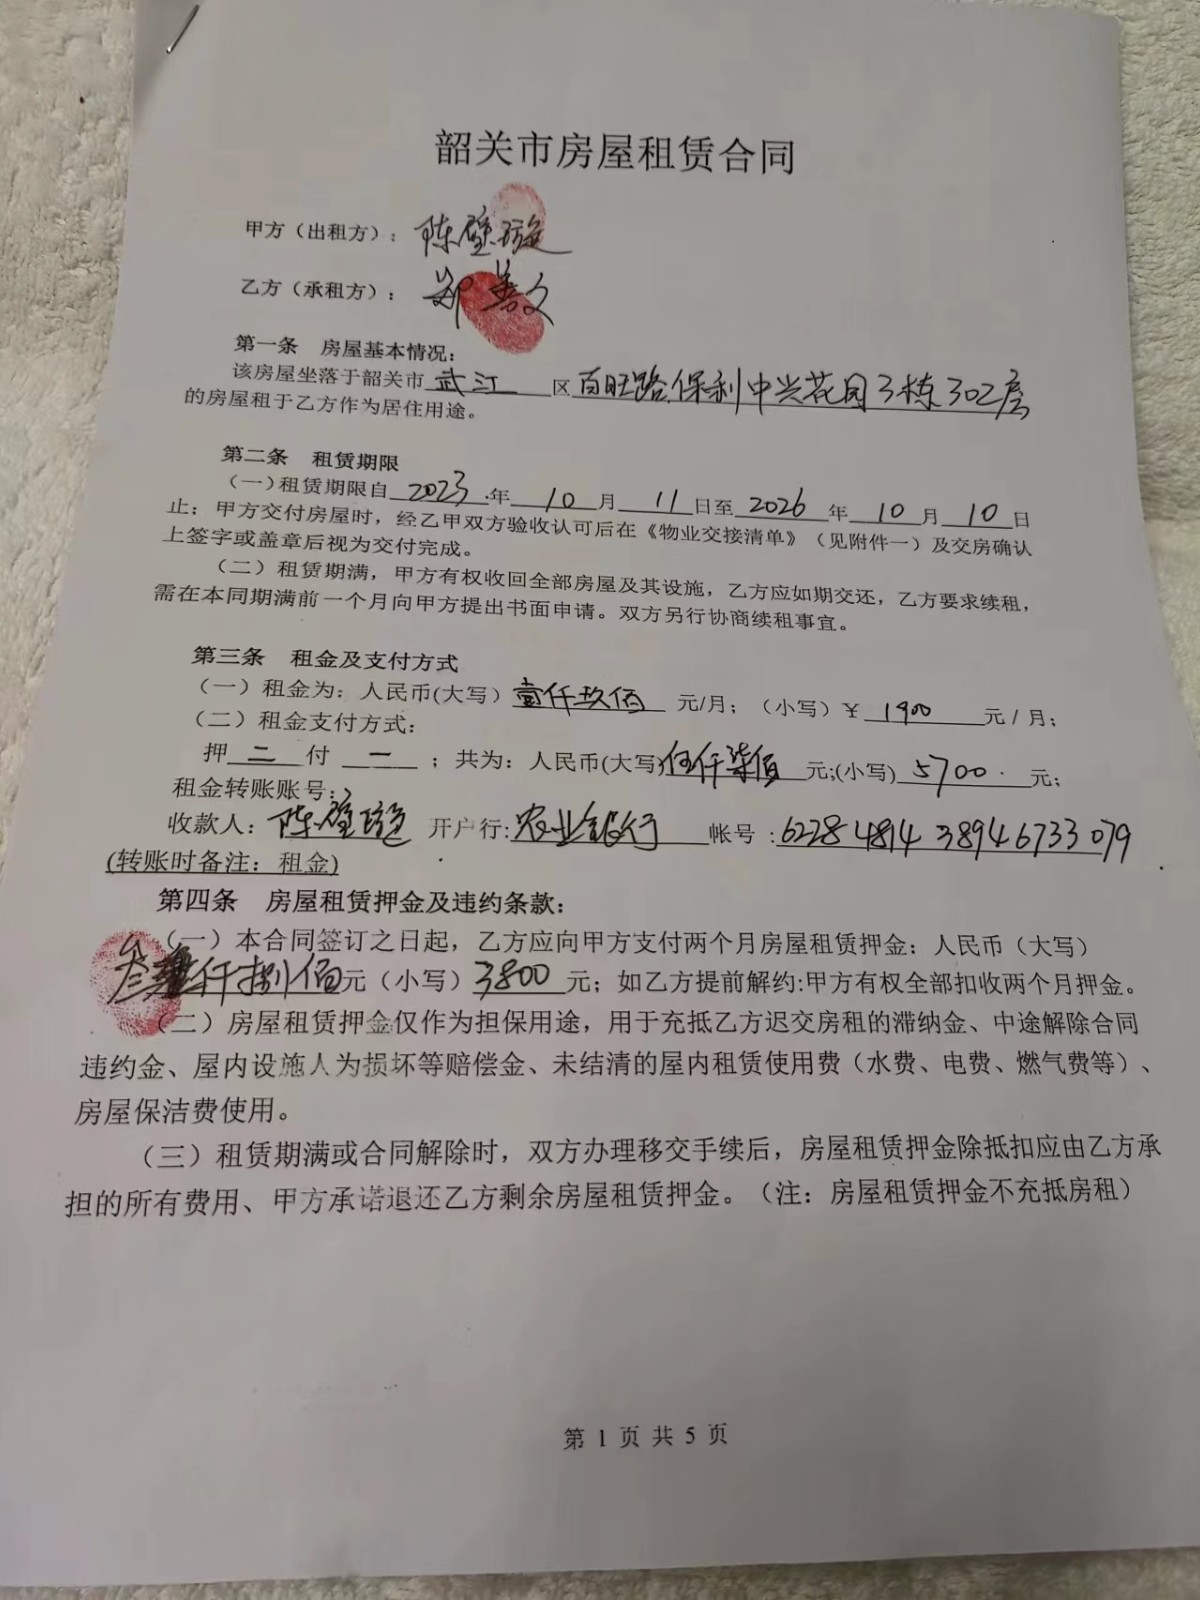 韶关市房屋租赁合同
甲方（出租方）：陈璧璇
乙方（承租方）：郑善文
第一条 房屋基本情况：
该房屋坐落于韶关市武江区百旺路保利中兴花园3栋302房
的房屋租于乙方作为居住用途。
第二条 租赁期限
（一）租赁期限自2023年10月11日至2026年10月10日
止；甲方交付房屋时，经乙甲双方验收认可后在《物业交接清单》（见附件一）及交房确认
上签字或盖章后视为交付完成。
（二）租赁期满，甲方有权收回全部房屋及其设施，乙方应如期交还，乙方要求续租，
需在本同期满前一个月向甲方提出书面申请。双方另行协商续租事宜。
第三条 租金及支付方式
（一）租金为：人民币(大写)壹仟玖佰元/月；（小写）￥1900元/月；
（二）租金支付方式：
押二付一；共为：人民币(大写)伍仟柒佰元;(小写)5700.元；
租金转账账号：
收款人：陈璧璇 开户行:农业银行 帐号:6228 4814 3894 6733 079
(转账时备注：租金)
第四条 房屋租赁押金及违约条款：
（一）本合同签订之日起，乙方应向甲方支付两个月房屋租赁押金：人民币（大写）
叁仟捌佰元（小写）3800元；如乙方提前解约:甲方有权全部扣收两个月押金。
（二）房屋租赁押金仅作为担保用途，用于充抵乙方迟交房租的滞纳金、中途解除合同
违约金、屋内设施人为损坏等赔偿金、未结清的屋内租赁使用费（水费、电费、燃气费等）、
房屋保洁费使用。
（三）租赁期满或合同解除时，双方办理移交手续后，房屋租赁押金除抵扣应由乙方承
担的所有费用、甲方承诺退还乙方剩余房屋租赁押金。（注：房屋租赁押金不充抵房租）
第 1 页 共 5 页